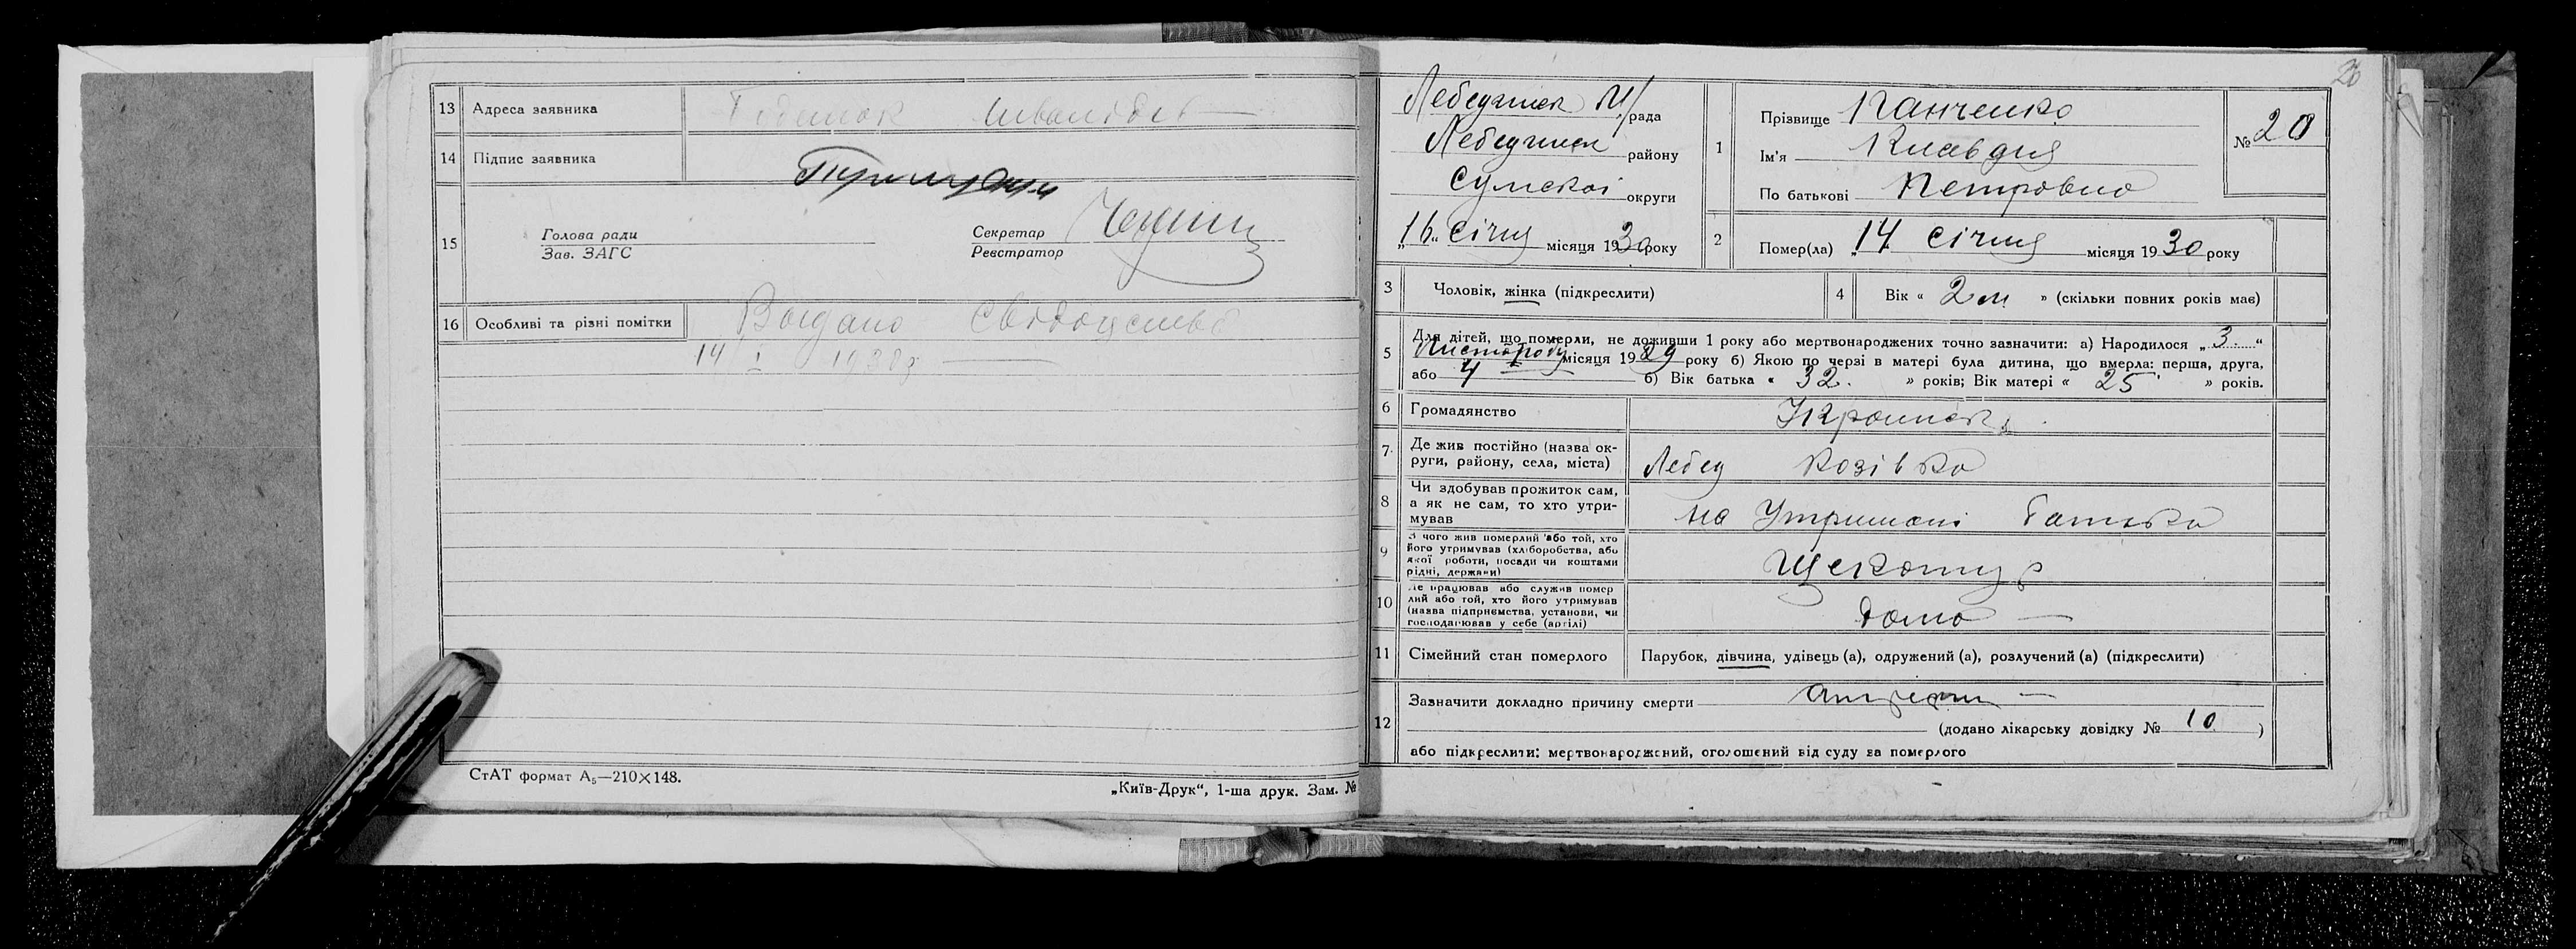 13 Адреса заявника
14 Підпис заявника
15 Голова ради
Зав. ЗАГС
Секретар
Реєстратор
16 Особливі та різні помітки
14 I
СтАТ формат А₅—210×148.
„Київ-Друк“, 1-ша друк. Зам. №
20
Лебединск М/рада
Лебединск району
Сумської округи
„16“ Січня місяця 1930 року
1 Прізвище Панченко
Ім'я Клавдія
По батькові Петровна
№ 20
2 Помер(ла) „14 Січня місяця 1930 року
3 Чоловік, жінка (підкреслити)
4 Вік « 2 м » (скільки повних років має)
5 Для дітей, що померли, не доживши 1 року або мертвонароджених точно зазначити: а) Народилося „3.“
Листопаду місяця 1929 року б) Якою по черзі в матері була дитина, що вмерла: перша, друга,
або 4 б) Вік батька « 32. » років; Вік матері « 25 » років.
6 Громадянство Украинск
7 Де жив постійно (назва округи, району, села, міста) Лебед Козівка
8 Чи здобував прожиток сам,
а як не сам, то хто утри-
мував на Утримані батька
9 З чого жив померлий або той, хто
його утримував (хліборобства, або
якої роботи, посади чи коштами
рідні, держави)
10 Де працював або служив помер
лий або той, хто його утримував
(назва підприємства, установи, чи
господарював у себе (артілі) дома
11 Сімейний стан померлого Парубок, дівчина, удівець (а), одружений (а), розлучений (а) (підкреслити)
12 Зазначити докладно причину смерти
(додано лікарську довідку № 10)
або підкреслити: мертвонароджений, оголошений від суду за померлого